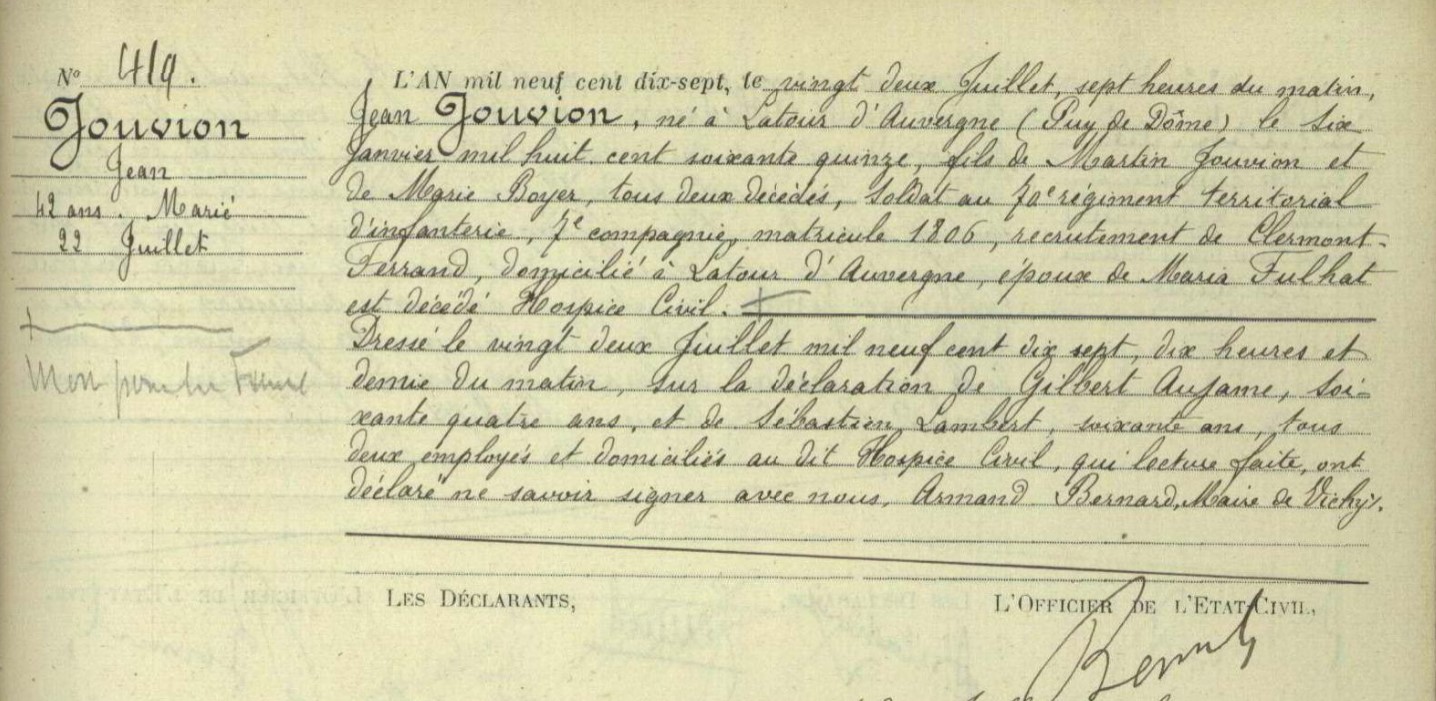 N° 419.
Jouvion
Jean
42 ans. Marié
22 Juillet
Mon pour la France
L'AN mil neuf cent dix-sept, le vingt deux Juillet, sept heures du matin,
Jean Jouvion, né à Latour d'Auvergne (Puy de Dôme) le six
Janvier mil huit cent soixante quinze, fils de Martin Jouvion et
de Marie Boyer, tous deux décédés, soldat au 70e régiment territorial
d'infanterie, 7e compagnie, matricule 1806, recrutement de Clermont-
Ferrand, domicilié à Latour d'Auvergne, époux de Maria Fulhat
est décédé Hospice Civil.
Dressé le vingt deux Juillet mil neuf cent dix sept, dix heures et
demie du matin, sur la déclaration de Gilbert Aujame, soi-
xante quatre ans, et de Sébastien Lambert, soixante ans, tous
deux employés et domiciliés au dit Hospice Civil, qui lecture faite, ont
déclaré ne savoir signer avec nous, Armand Bernard, Maire de Vichy.
LES DÉCLARANTS,
L'OFFICIER DE L'ETAT-CIVIL,